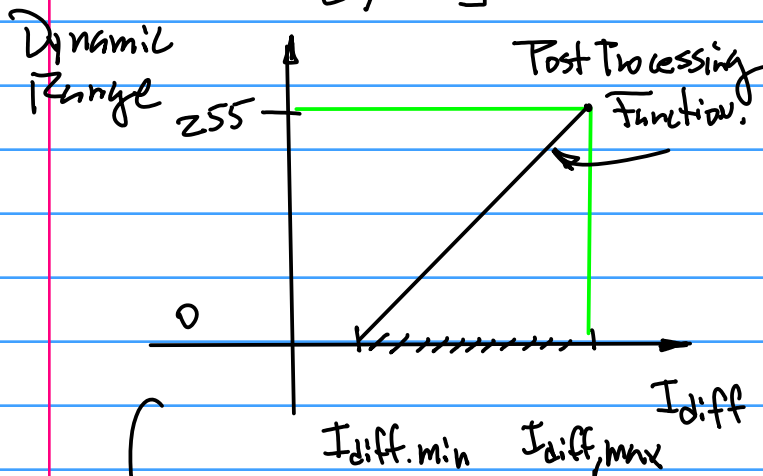 Dynamic
Range
Post Processing
Function.
255
0
I diff
I diff.min
I diff,max